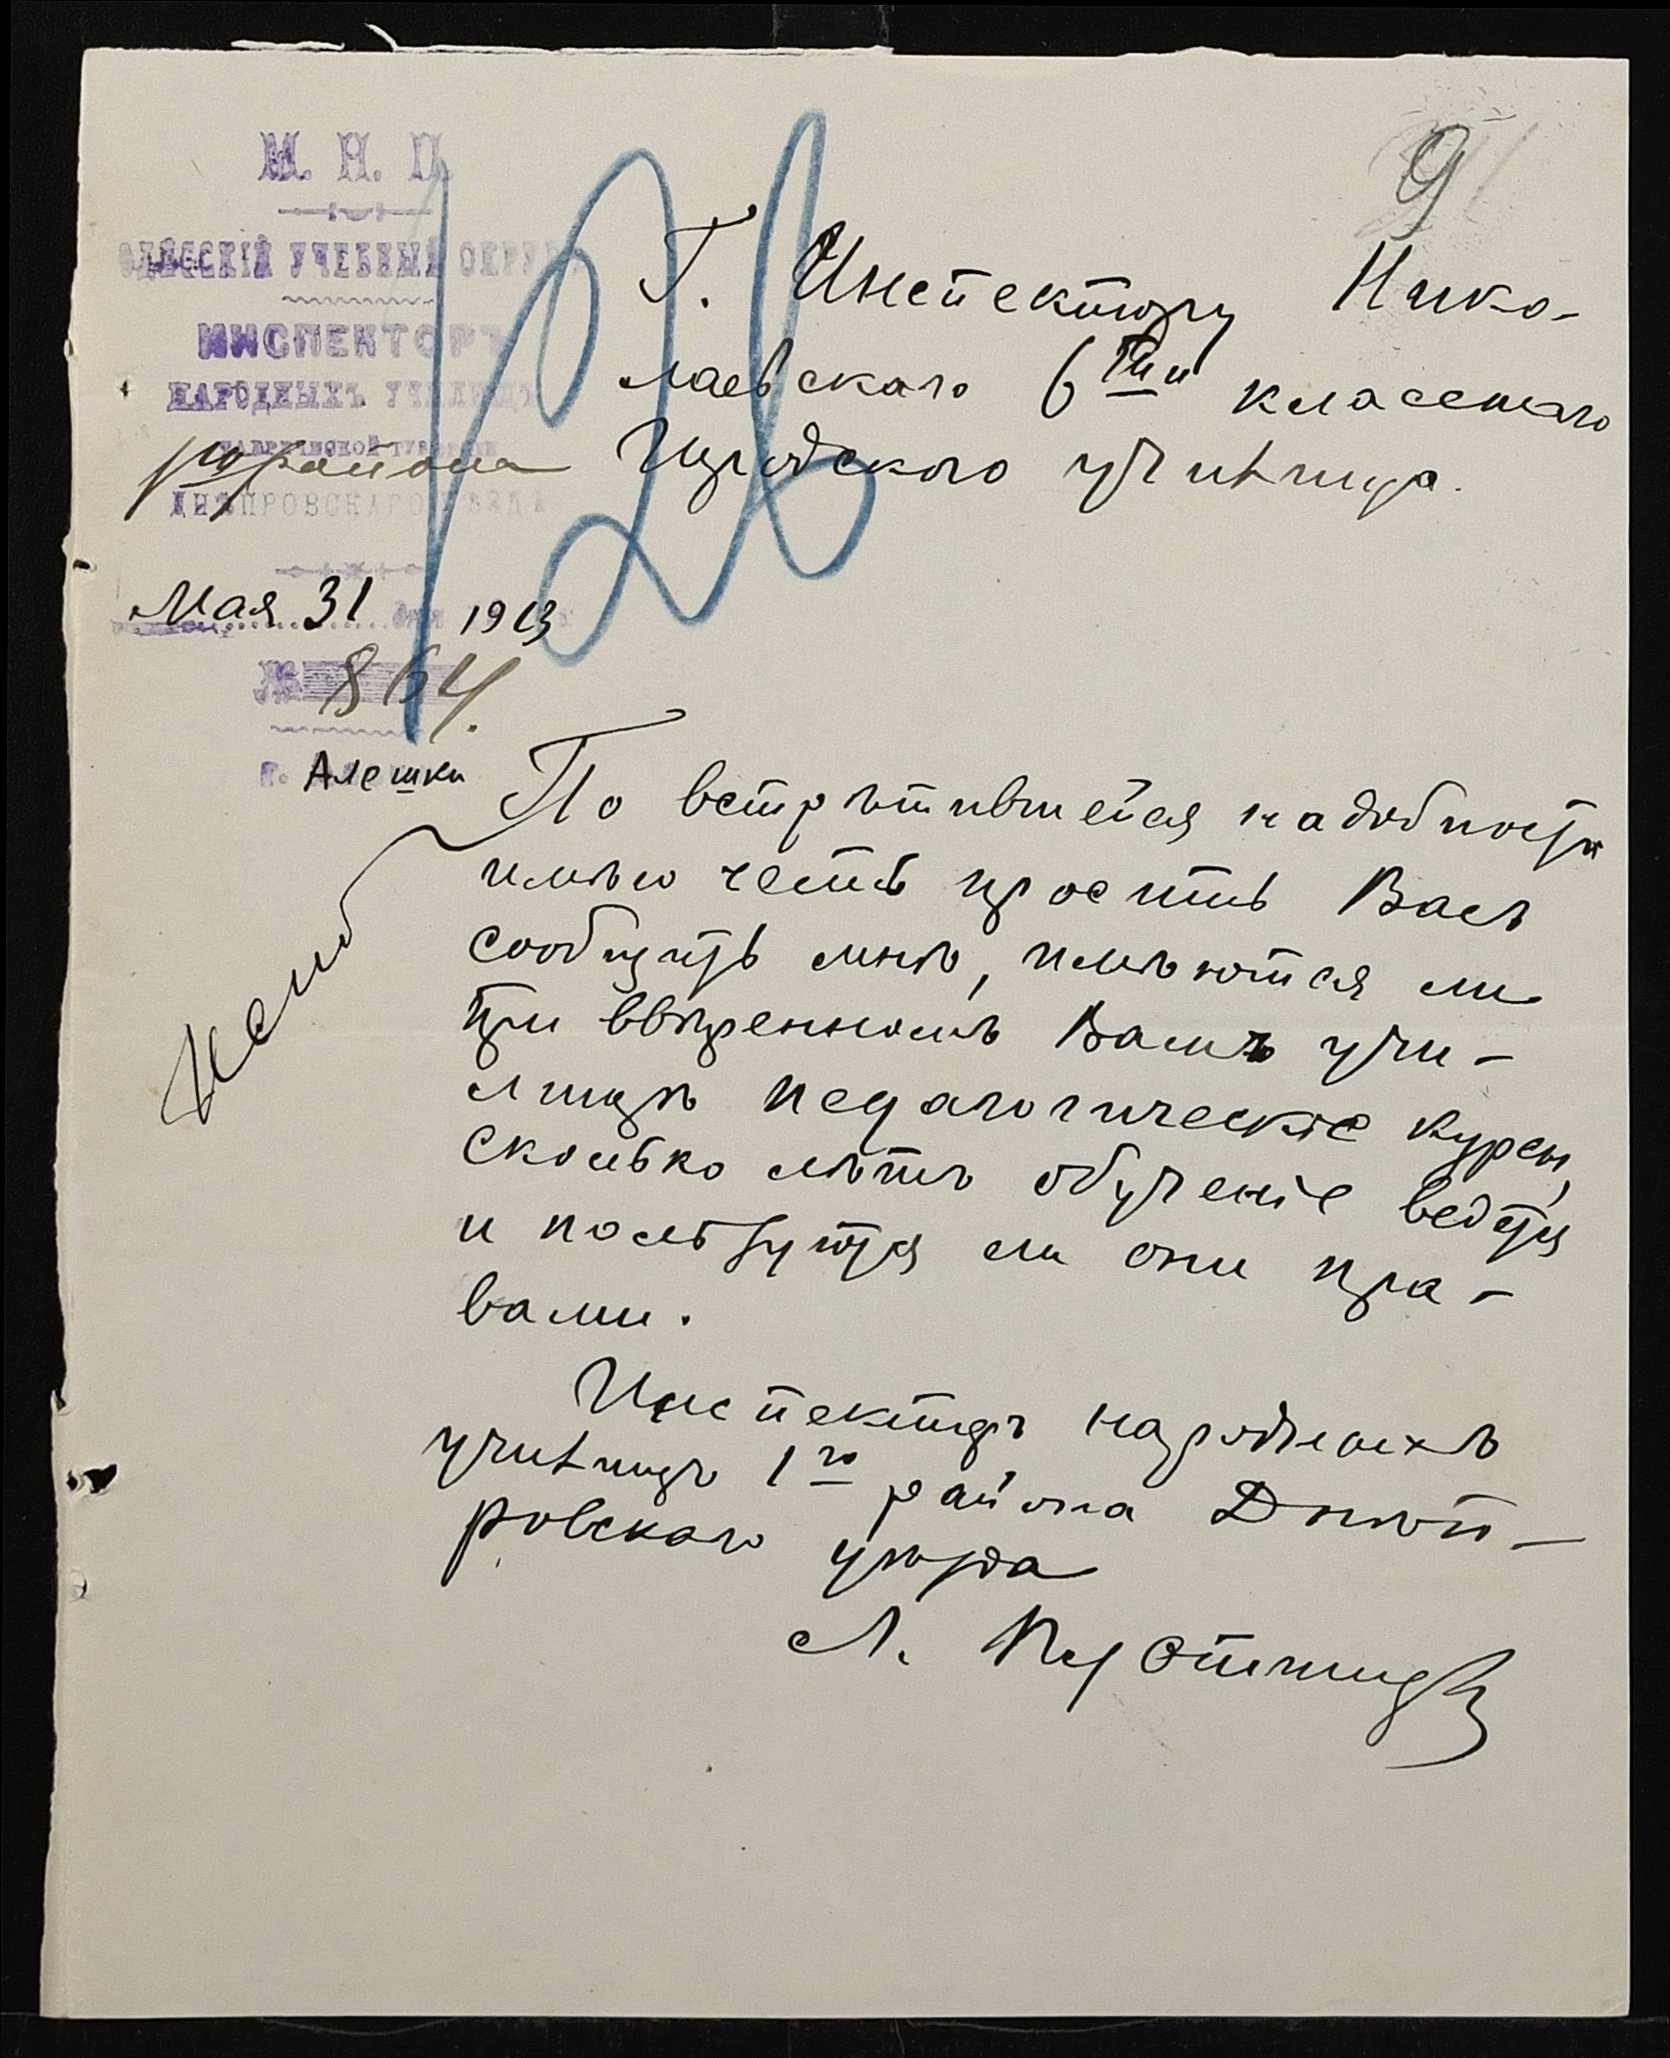 9
М. Н. П.
ОДЕССКІЙ УЧЕБНЫЙ ОКРУГЪ
ИНСПЕКТОРЪ
НАРОДНЫХЪ УЧИЛИЩЪ
ТАВРИЧЕСКОЙ ГУБЕРНІИ
1го района
ДНѢПРОВСКАГО УѢЗДА
Мая 31 дня 1913
№ 864.
г. Алешки
126
Г. Инспектору Нико-
лаевскаго 6ти класснаго
Городского училища.
По встрѣтившейся надобности
имѣю честь просить Васъ
сообщить мнѣ, имѣются ли
при ввѣренномъ Вамъ учи-
лищѣ педагогическіе курсы,
сколько лѣтъ обученіе ведется
и пользуются ли они пра-
вами.
Инспекторъ народныхъ
училищъ 1го района Днѣп-
ровскаго уѣзда
Л.